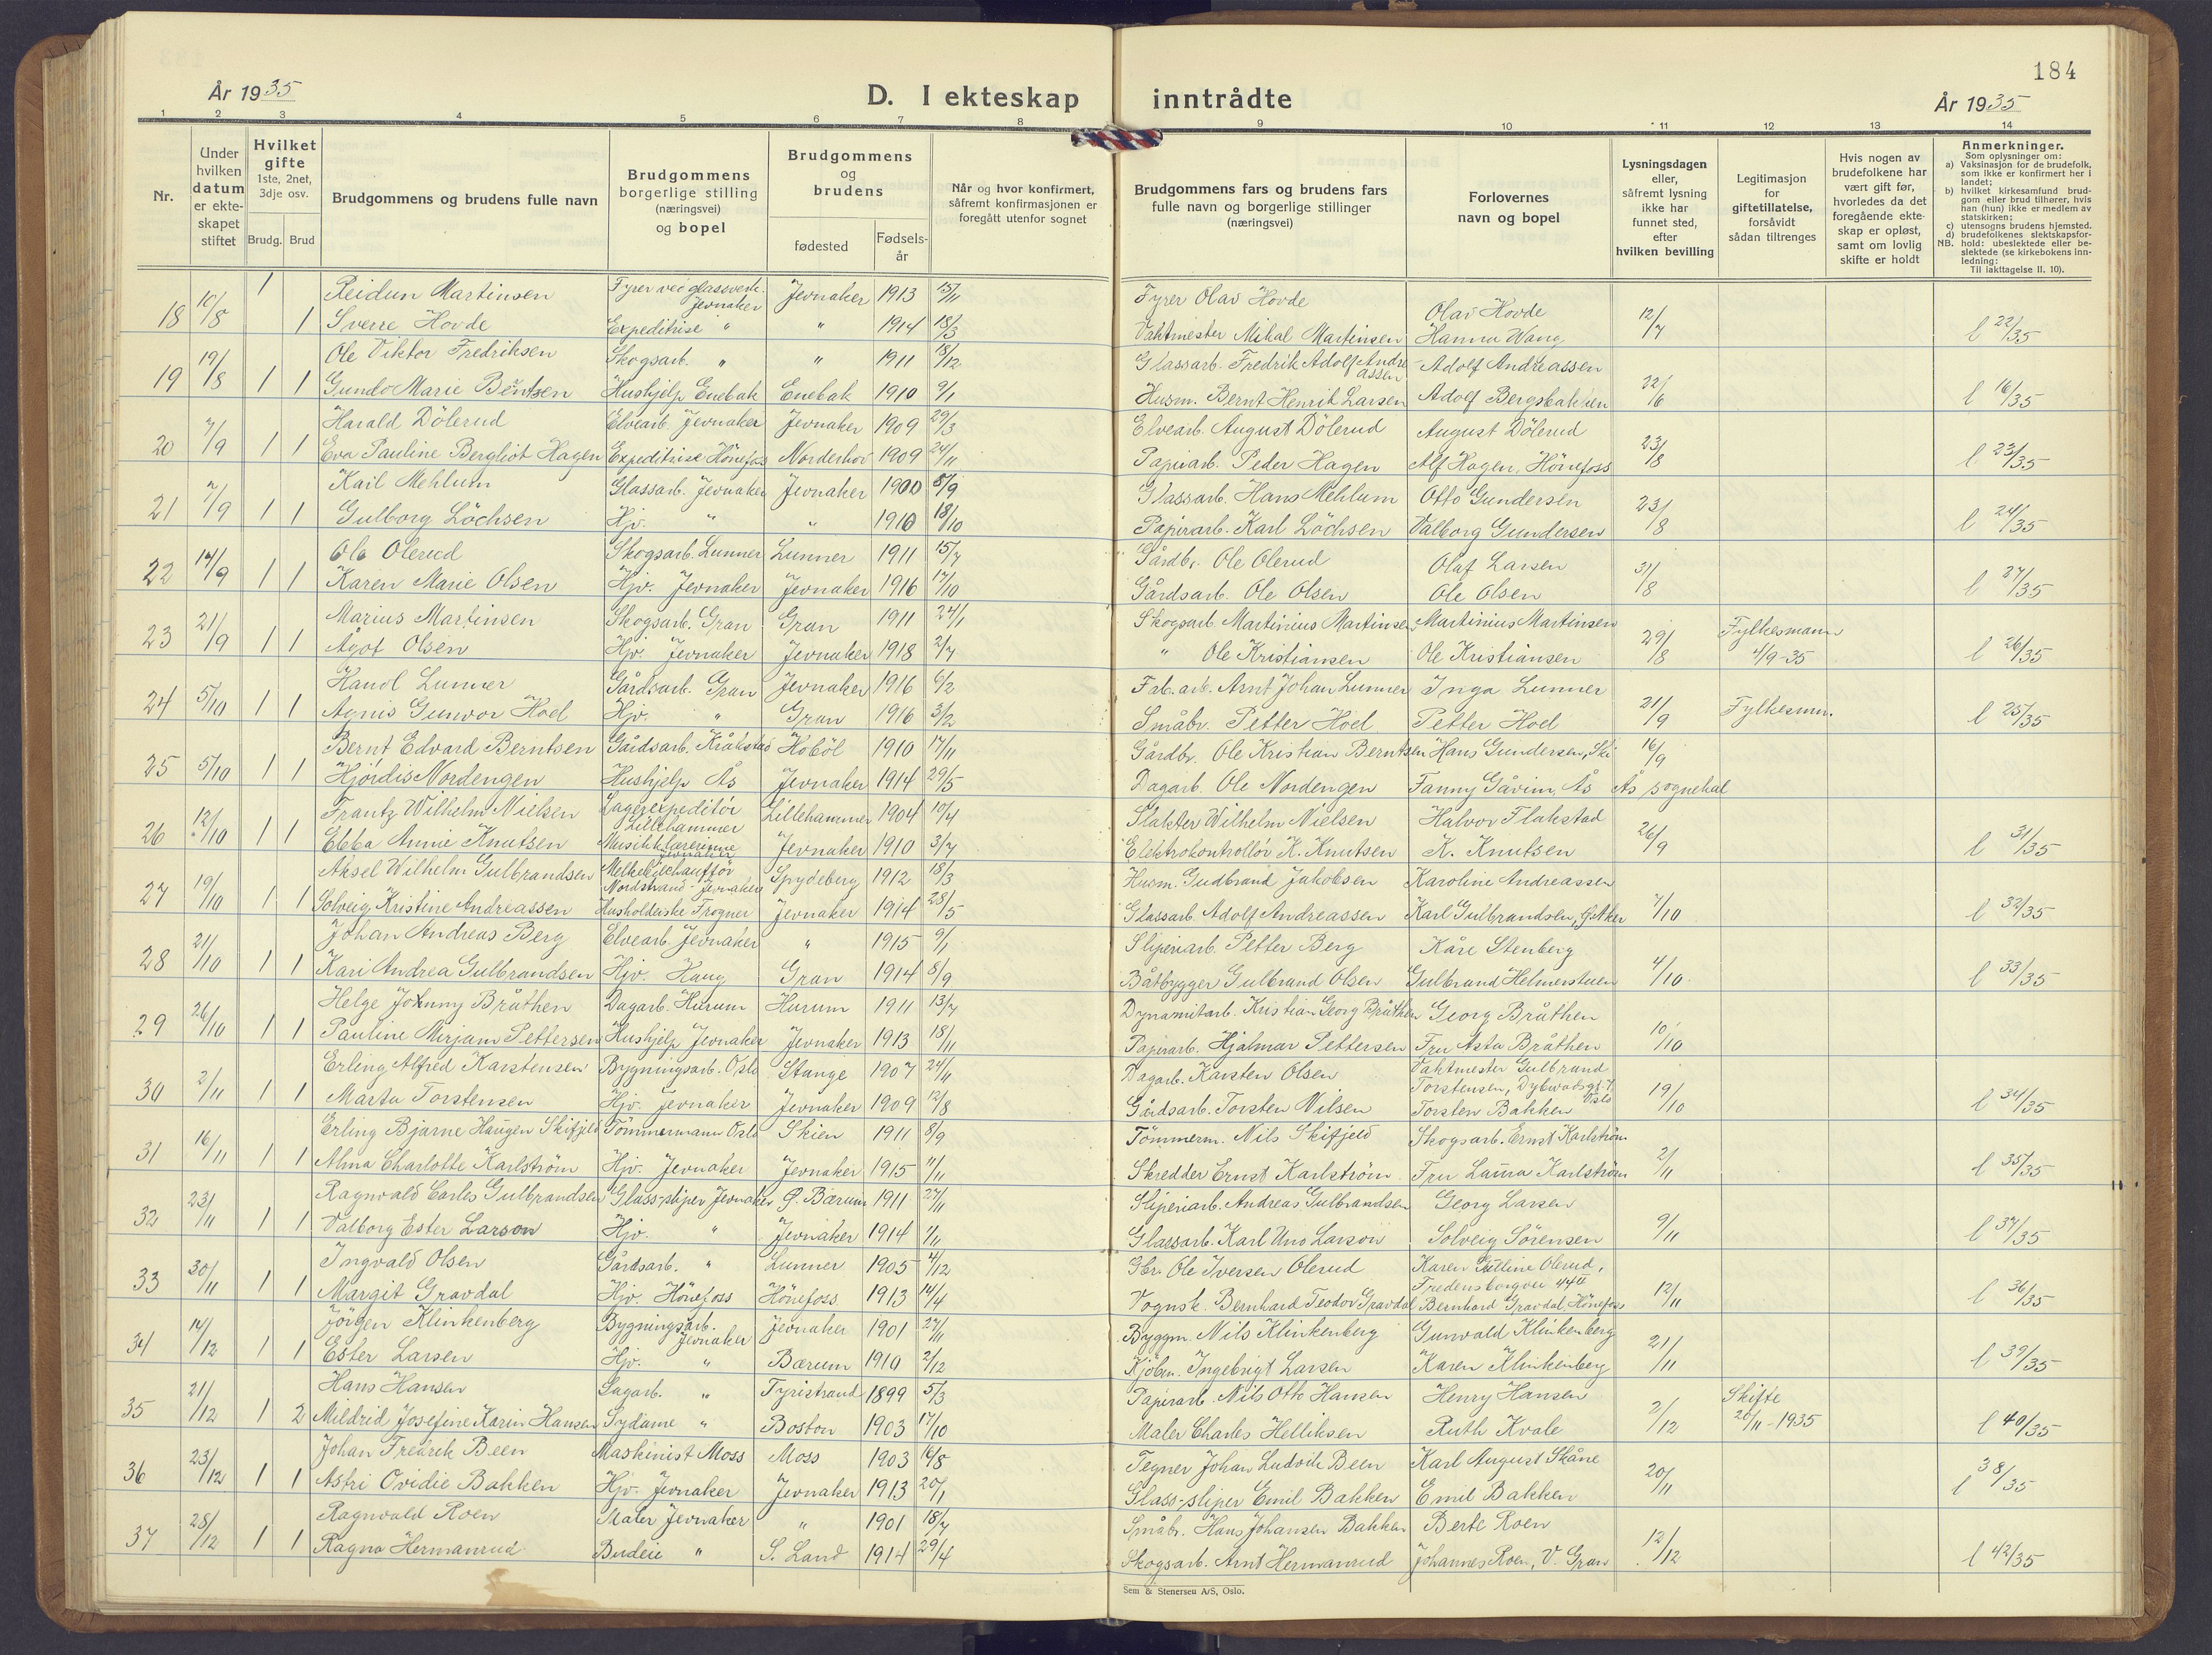 184
År 1935
D. I ekteskap inntrådte
År 1935
1 2 3 4 5 6 7 8 9 10 11 12 13 14
Nr.
Under hvilken datum er ekteskapet stiftet
Hvilket gifte 1ste, 2net, 3dje osv.
Brudg. Brud
Brudgommens og brudens fulle navn
Brudgommens borgerlige stilling (næringsvei) og bopel
Brudgommens og brudens
fødested
Fødselsår
Når og hvor konfirmert, såfremt konfirmasjonen er foregått utenfor sognet
Brudgommens fars og brudens fars fulle navn og borgerlige stillinger (næringsvei)
Forlovernes navn og bopel
Lysningsdagen eller, såfremt lysning ikke har funnet sted, efter hvilken bevilling
Legitimasjon for giftetillatelse, forsåvidt sådan tiltrenges
Hvis nogen av brudefolkene har vært gift før, hvorledes da det foregående ekteskap er opløst, samt om lovlig skifte er holdt
Anmerkninger.
Som oplysninger om:
a) Vaksinasjon for de brudefolk, som ikke er konfirmert her i landet;
b) hvilket kirkesamfund brudgom eller brud tilhører, hvis han (hun) ikke er medlem av statskirken;
c) utensogns brudens hjemsted.
d) brudefolkenes slektskapsfor-
NB. hold: ubeslektede eller beslektede (se kirkebokens innledning:
Til iakttagelse II. 10).
Reidun Martinsen Fyrer ved glassverk. Jevnaker Jevnaker 1913 15/11 Fyrer Olav Hovde Olav Hovde
18 10/8 1 1 Sverre Hovde Expeditrise " " 1914 18/3 Vaktmester Mikal Martinsen Hanna Wang 12/7 l 22/35
Ole Viktor Fredriksen Skogsarb. " " 1911 18/12 Glassarb. Fredrik Adolf Andreassen Adolf Andreassen
19 19/8 1 1 Gunda Marie Bentsen Hushjelp Enebak Enebak 1910 9/1 Husm. Bernt Henrik Larsen Adolf Bergsbakken 22/6 l 16/35
Harald Dölerud Elvearb. Jevnaker Jevnaker 1909 29/3 Elvearb. August Dölerud August Dölerud
20 7/9 1 1 Eva Pauline Bergliot Hagen Expeditrise Hönefoss Norderhov 1909 24/11 Papirarb. Peder Hagen Alf Hagen, Hönefoss 23/8 l 23/35
Karl Mehlum Glassarb. Jevnaker Jevnaker 1900 8/9 Glassarb. Hans Mehlum Otto Gundersen
21 7/9 1 1 Gulborg Löchsen Hjv. " " 1910 18/10 Papirarb. Karl Löchsen Valborg Gundersen 23/8 l 24/35
Ole Olerud Skogsarb. Lunner Lunner 1911 15/7 Gårdbr. Ole Olerud Olaf Larsen
22 14/9 1 1 Karen Marie Olsen Hjv. Jevnaker Jevnaker 1916 17/10 Gårdsarb. Ole Olsen Ole Olsen 31/8 l 27/35
Marius Martinsen Skogsarb. Gran Gran 1911 24/1 Skogsarb. Martinius Martinsen Martinius Martinsen Fylkesmann
23 21/9 1 1 Ågot Olsen Hjv. Jevnaker Jevnaker 1918 2/7 " Ole Kristiansen Ole Kristiansen 29/8 4/9-35 l 26/35
Lunner Gårdsarb. Gran Jevnaker 1916 6/2 Fab.arb. Arnt Johan Lunner Inga Lunner
24 5/10 1 1 Agnis Gunvor Hoel Hjv. " Gran 1916 3/2 Småbr. Petter Hoel Petter Hoel 21/9 Fylkesmn. l 25/35
Bernt Edvard Berntsen Gårdsarb. Kråkstad Hoböl 1910 17/11 Gårdbr. Ole Kristian Berntsen Hans Gundersen, Ski 16/9
25 5/10 1 1 Hjördis Nordengen Hushjelp Ås Jevnaker 1914 29/5 Dagarb. Ole Nordengen Fanny Gåvim, Ås Ås sognekal
Frantz Wilhelm Nielsen Lagerexpeditör Lillehammer Lillehammer 1904 10/4 Slakter Wilhelm Nielsen Halvor Flakstad
26 12/10 1 1 Ebba Annie Knutsen Musikklærerinne Jevnaker Jevnaker 1910 3/7 Elektrokontrollör K. Knutsen K. Knutsen 26/9 l 31/35
Aksel Wilhelm Gulbrandsen Melkebilchaufför Nordstrand - Jevnaker Spydeberg 1912 18/3 Husm. Gudbrand Jakobsen Karoline Andreassen
27 19/10 1 1 Solveig Kristine Andreassen Husholderske Frogner Jevnaker 1914 28/5 Glassarb. Adolf Andreassen Karl Gulbrandsen, 7/10 l 32/35
Johan Andreas Berg Elvearb. Jevnaker " 1915 9/1 Sliperiarb. Petter Berg Kåre Stenberg
28 21/10 1 1 Kari Andrea Gulbrandsen Hjv. Haug Gran 1914 8/9 Båtbygger Gulbrand Olsen Gulbrand Helmerstuen 4/10 l 33/35
Helge Johnny Bråthen Dagarb. Hurum Hurum 1911 13/7 Dynamitarb. Kristian Georg Bråthen Georg Bråthen
29 26/10 1 1 Pauline Mirjam Pettersen Hushjelp Jevnaker Jevnaker 1913 18/11 Papirarb. Hjalmar Pettersen Fru Asta Bråthen 10/10
Erling Alfred Karstensen Bygningsarb. Oslo Stange 1907 24/11 Dagarb. Karsten Olsen Vaktmester Gulbrand Torstensen, Dybwadsgt. 7. Oslo
30 2/11 1 1 Marta Torstensen Hjv. Jevnaker Jevnaker 1909 12/8 Gårdsarb. Torsten Nilsen Torsten Bakken 19/10 l 34/35
Erling Bjarne Haugen Skifjeld Tömmermann Oslo Skien 1911 8/9 Tömmerm. Nils Skifjeld Skogsarb. Ernst Karlström
31 16/11 1 1 Alma Charlotte Karlström Hjv. Jevnaker Jevnaker 1915 11/11 Skredder Ernst Karlström Fru Laura Karlström 2/11 l 35/35
Ragnvald Carles Gulbrandsen Glass-sliper Jevnaker Ö. Bærum 1911 27/11 Sliperiarb. Andreas Gulbrandsen Georg Larsen
32 23/11 1 1 Valborg Ester Larson Hjv. " Jevnaker 1914 1/11 Glassarb. Karl Uno Larson Solveig Sörensen 9/11 l 37/35
Ingvald Olsen Gårdsarb. " Lunner 1905 4/12 Gbr. Ole Iversen Olerud Karen Olerud, Fredensborgvei 44 II
33 30/11 1 1 Margit Gravdal Hjv. Hönefoss Hönefoss 1913 14/4 Vognsk. Bernhard Teodor Gravdal Bernhard Gravdal, Hönefoss 12/11 l 36/35
Jörgen Klinkenberg Bygningsarb. Jevnaker Jevnaker 1901 27/11 Byggm. Nils Klinkenberg Gunvald Klinkenberg
34 14/12 1 1 Ester Larsen Hjv. " Bærum 1910 2/12 Kjöbm. Ingebrigt Larsen Karen Klinkenberg 21/11 l 39/35
Hans Hansen Sagarb. " Tyristrand 1899 5/3 Papirarb. Nils Otto Hansen Henry Hansen Skifte
35 21/12 1 2 Mildrid Josefine Karin Hansen Sydame " Boston 1903 17/10 Maler Charles Helliksen Ruth Kvale 2/12 20/11-1935 l 40/35
Johan Fredrik Been Maskinist Moss Moss 1903 16/8 Tegner Johan Ludvik Been Karl August Skåne
36 23/12 1 1 Astri Ovidie Bakken Hjv. Jevnaker Jevnaker 1913 20/1 Glass-sliper Emil Bakken Emil Bakken 20/11 l 38/35
Ragnvald Roen Maler Jevnaker " 1901 18/7 Småbr. Hans Johansen Bakken Berte Roen
37 28/12 1 1 Ragna Hermanrud Budeie " S. Land 1914 29/4 Skogsarb. Arnt Hermanrud Johannes Roen, V. Gran 12/12 l 42/35
Sem & Stenersen A/S, Oslo.